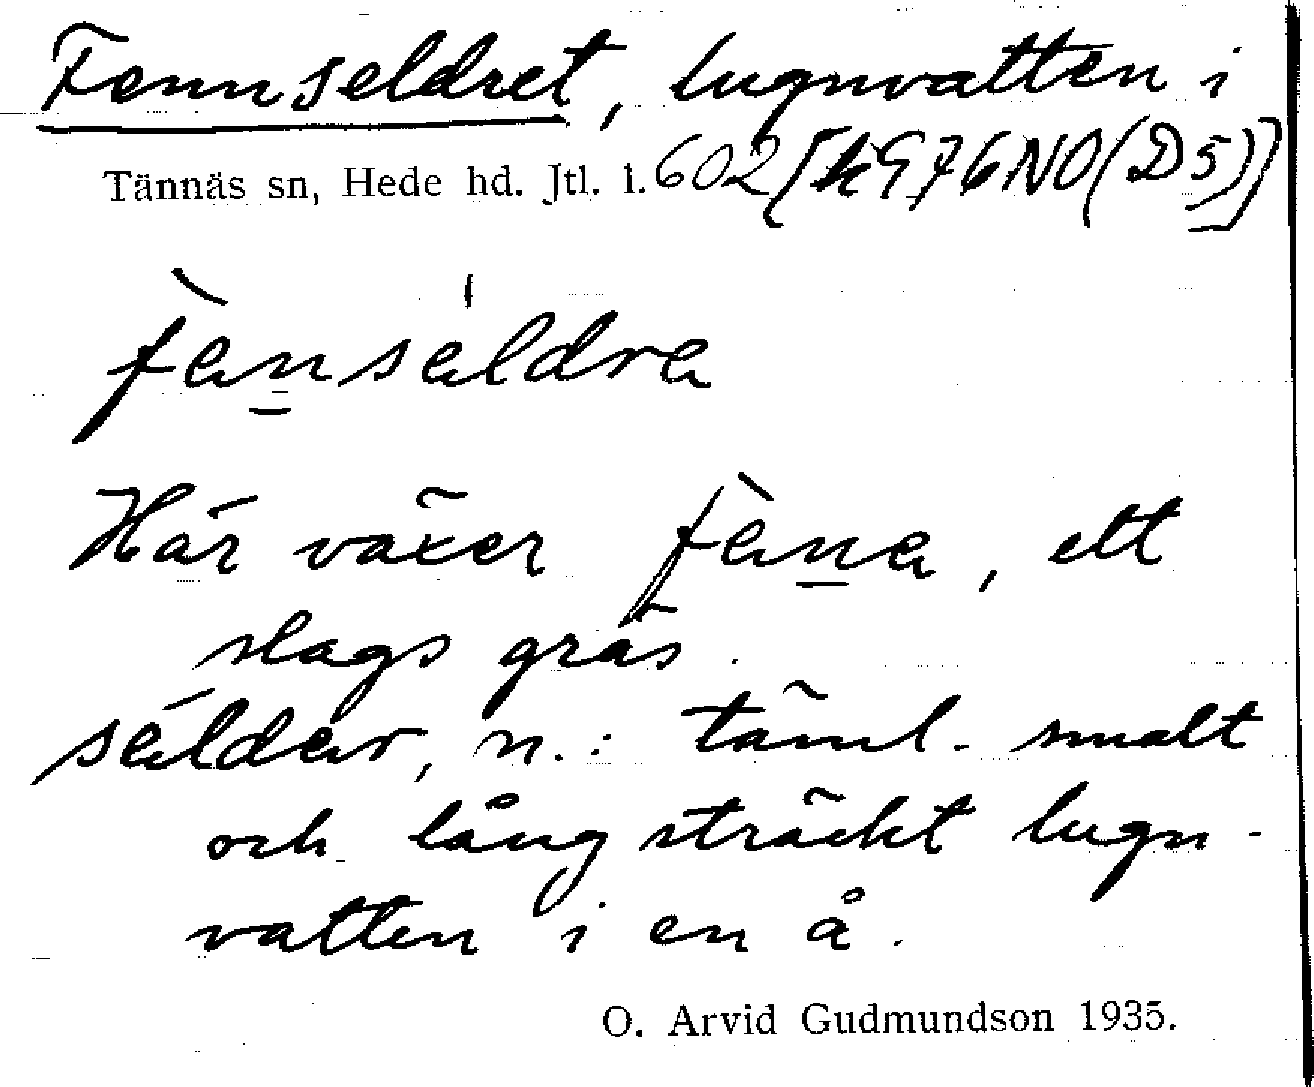 Fennseldret, lugnvatten i
Tännäs sn, Hede hd. Jtl. i. 602 [k976NO(D5)]
fa̠nsáldra
Här växer fàna, ett
slags gräs.
sáldar, n.: täml. smalt
och långsträckt lugn-
vatten i en å.
O. Arvid Gudmundson 1935.